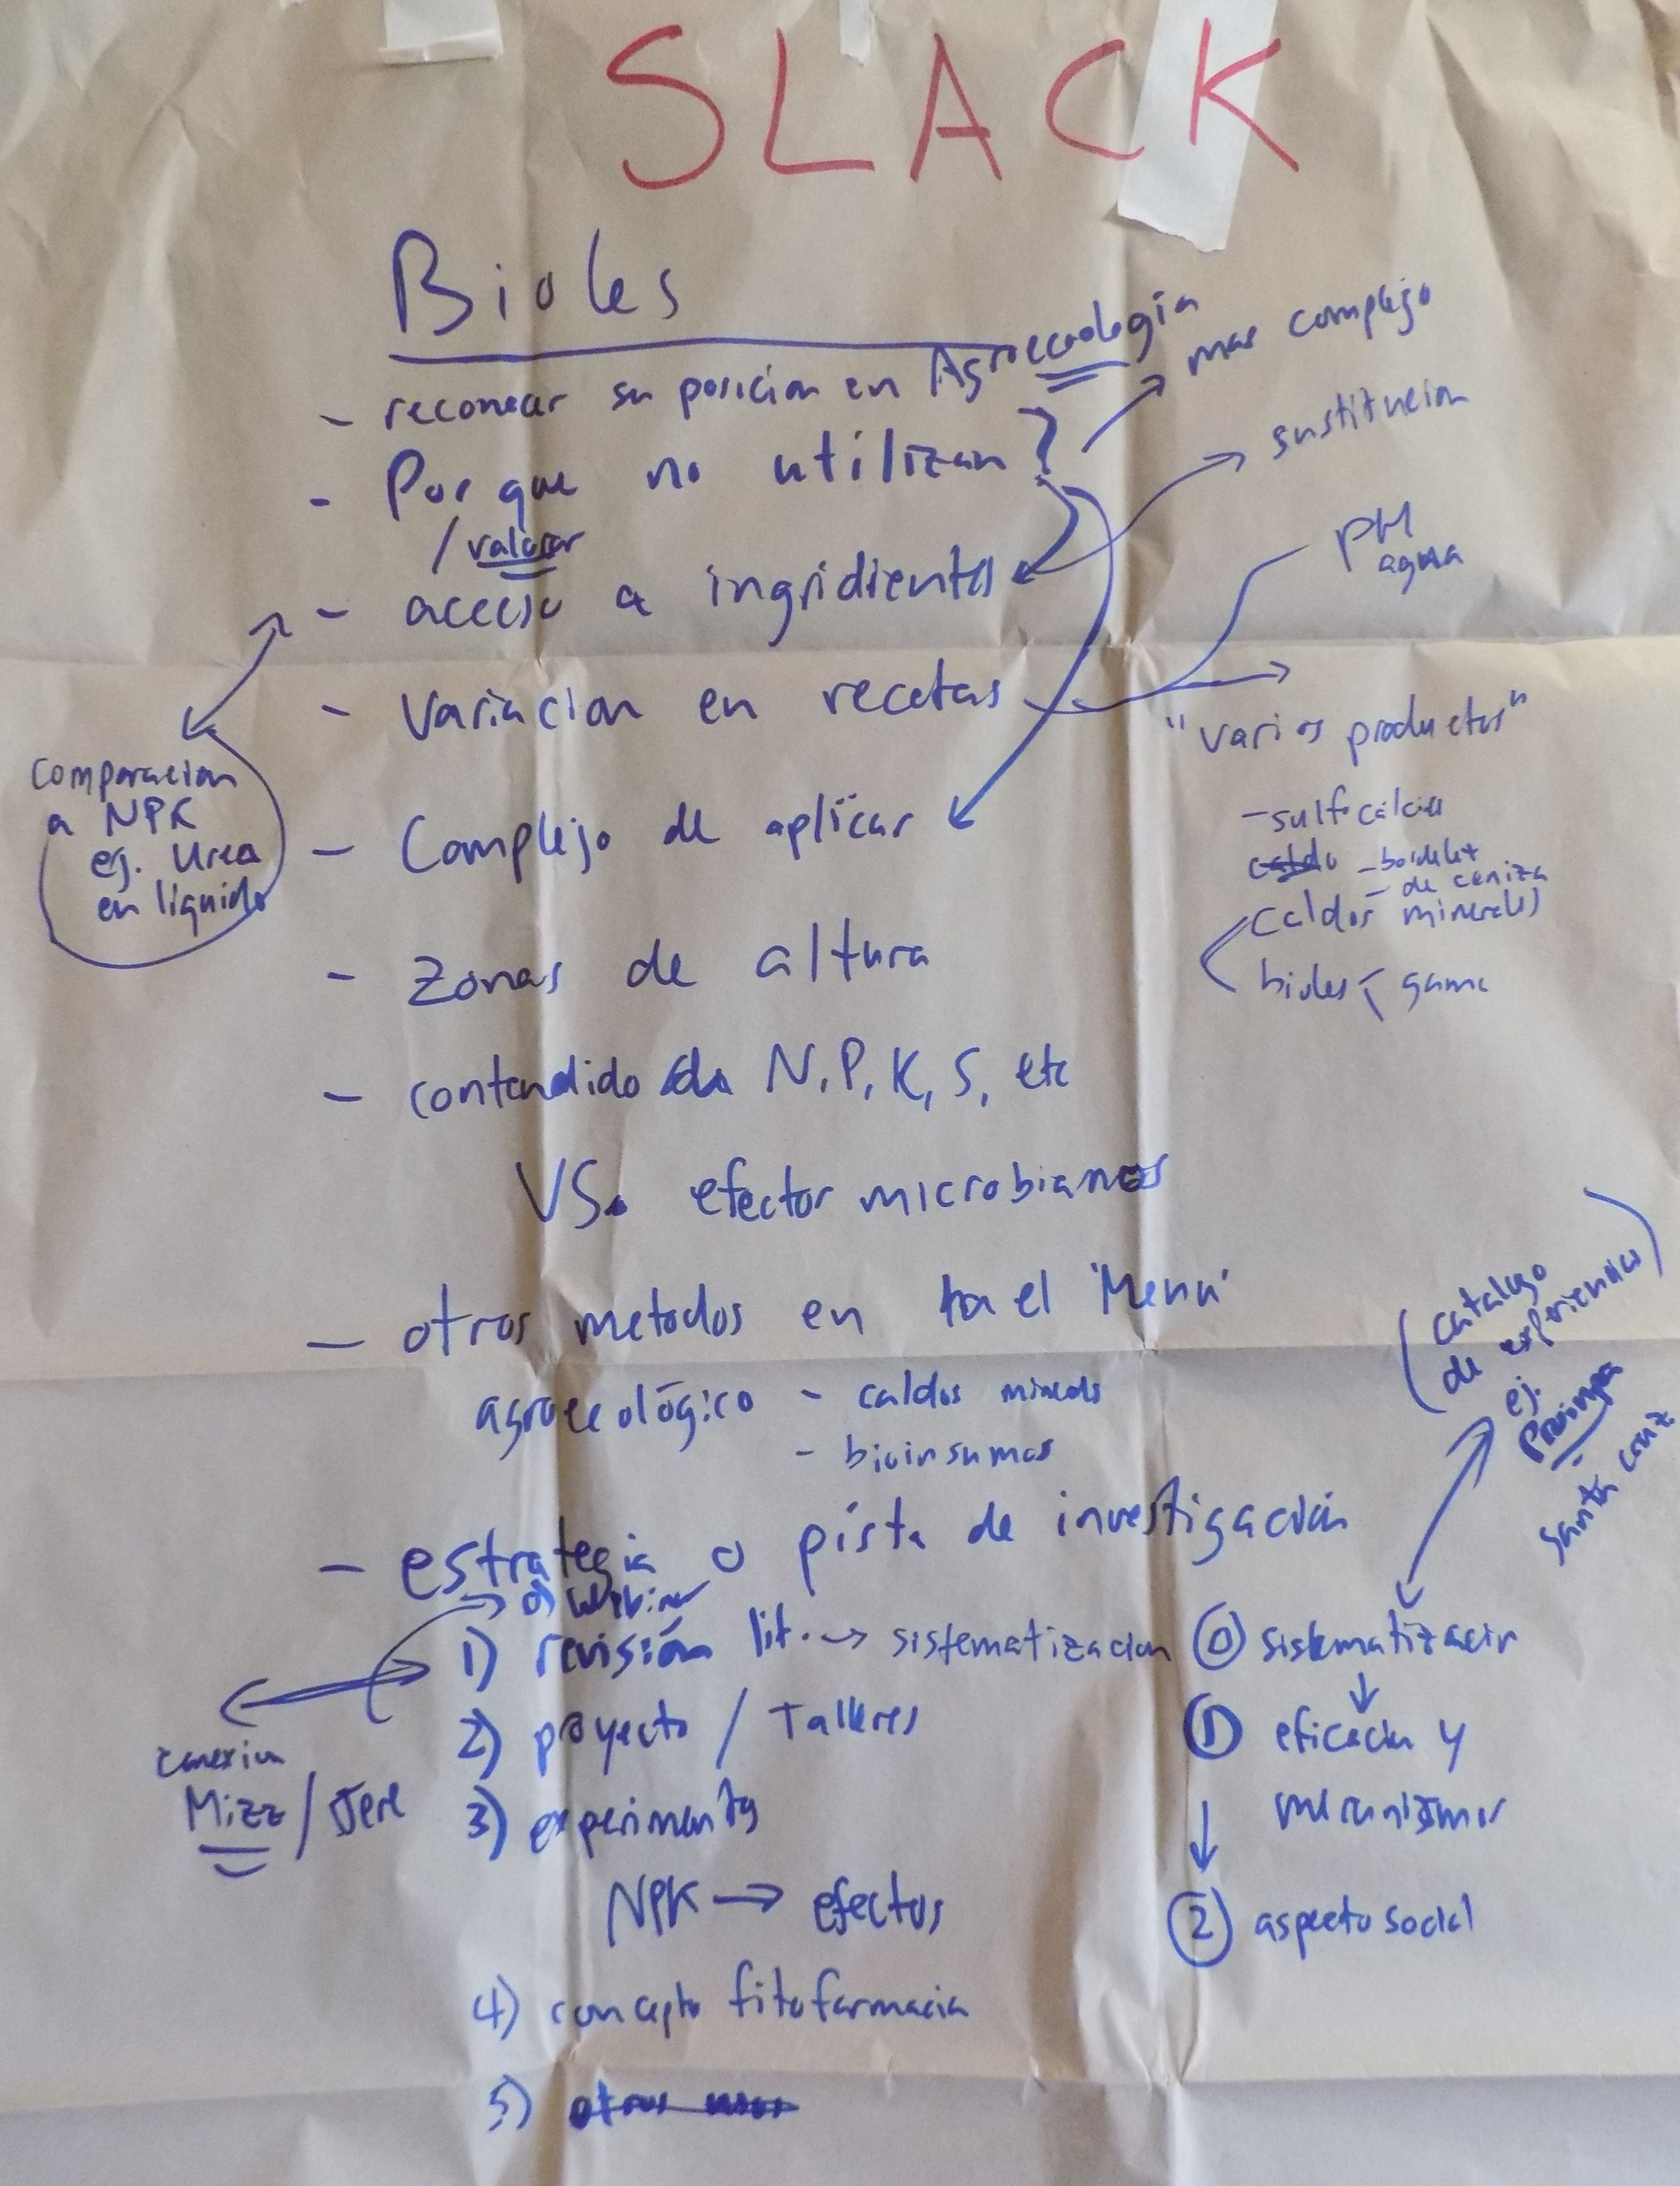 SLACK
Bioles
- reconocer su posicion en Agroecología
mas complejo
- Por que no utilizan?
/valorar
sustitucion
- acceso a ingridientes
PH
agua
- Variacion en recetas
"varios productos"
comparacion
a NPK
ej. Urea
en líquido
- sulfocalcico
caldo - bordelet
- de ceniza
caldos minerales
bioles < gama
- Complejo de aplicar
- Zonas de altura
- contendido de N, P, K, S, etc
VS. efector microbianos
- otros metodos en el 'Menu'
agroecológico - caldos minerals
- bioinsumos
(catalogo
de experiencias)
ej.
Proinpa
Santa Cruz
- estrategia o pista de investigación
0) Webinar
1) revisión lit. → sistematizacion
2) proyecto / Talleres
3) experimentos
NPK → efectos
4) concepto fitofarmacia
5) otros usos
conexion
Mizz / Jere
0 sistematizacion
1 eficacia y
mecanismos
2 aspecto social